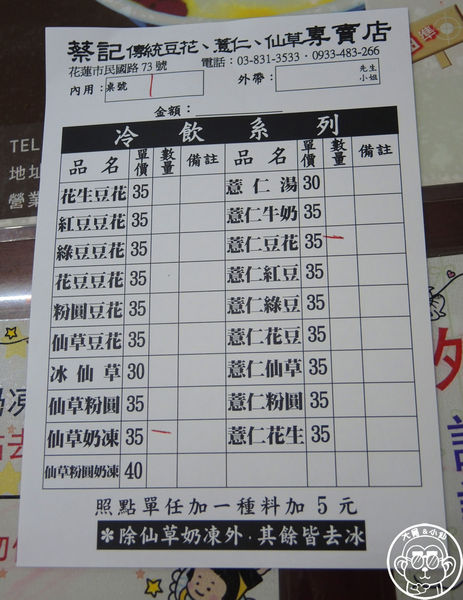 蔡記傳統豆花、薏仁、仙草專賣店
花蓮市民國路73號 電話:03-831-3533·0933-483-266
內用: 桌號 1 外帶: 先生 小姐
金額:
冷飲系列
品名 單價 數量 備註 品名 單價 數量 備註
花生豆花 35 薏仁湯 30
紅豆豆花 35 薏仁牛奶 35
綠豆豆花 35 薏仁豆花 35 一
花豆豆花 35 薏仁紅豆 35
粉圓豆花 35 薏仁綠豆 35
仙草豆花 35 薏仁花豆 35
冰仙草 30 薏仁仙草 35
仙草粉圓 35 薏仁粉圓 35
仙草奶凍 35 一 薏仁花生 35
仙草粉圓奶凍 40
照點單任加一種料加5元
*除仙草奶凍外·其餘皆去冰
TEL
地址
營業